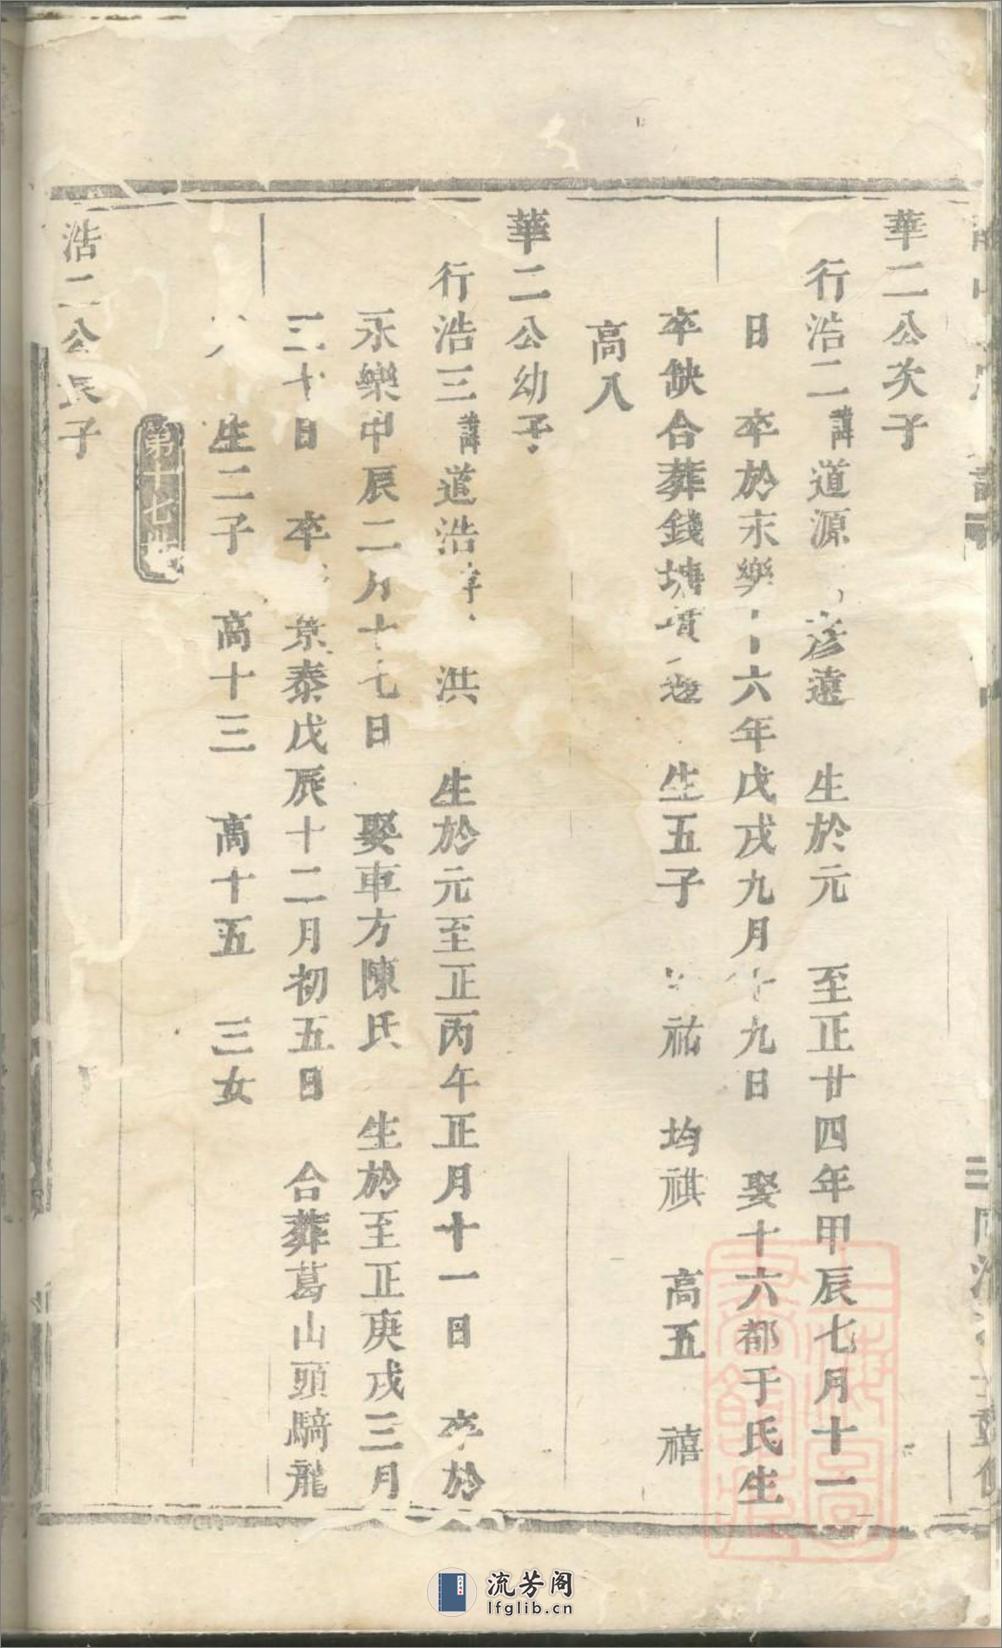 華二公次子
行浩二諱道源 彦遠 生於元 至正廿四年甲辰七月十一
日 卒於永樂十六年戊戌九月十九日 娶十六都于氏生
卒缺合葬錢塘 生五子 祐 均祺 高五 禧
高八
華二公幼子
行浩三諱道浩 洪 生於元至正丙午正月十一日 卒於
永樂甲辰二月十七日 娶車方陳氏 生於至正庚戌三月
三十日 卒 景泰戊辰十二月初五日 合葬葛山頭騎龍
生二子 高十三 高十五 三女
第十七世
浩二公長子
流芳阁
lfglib.cn